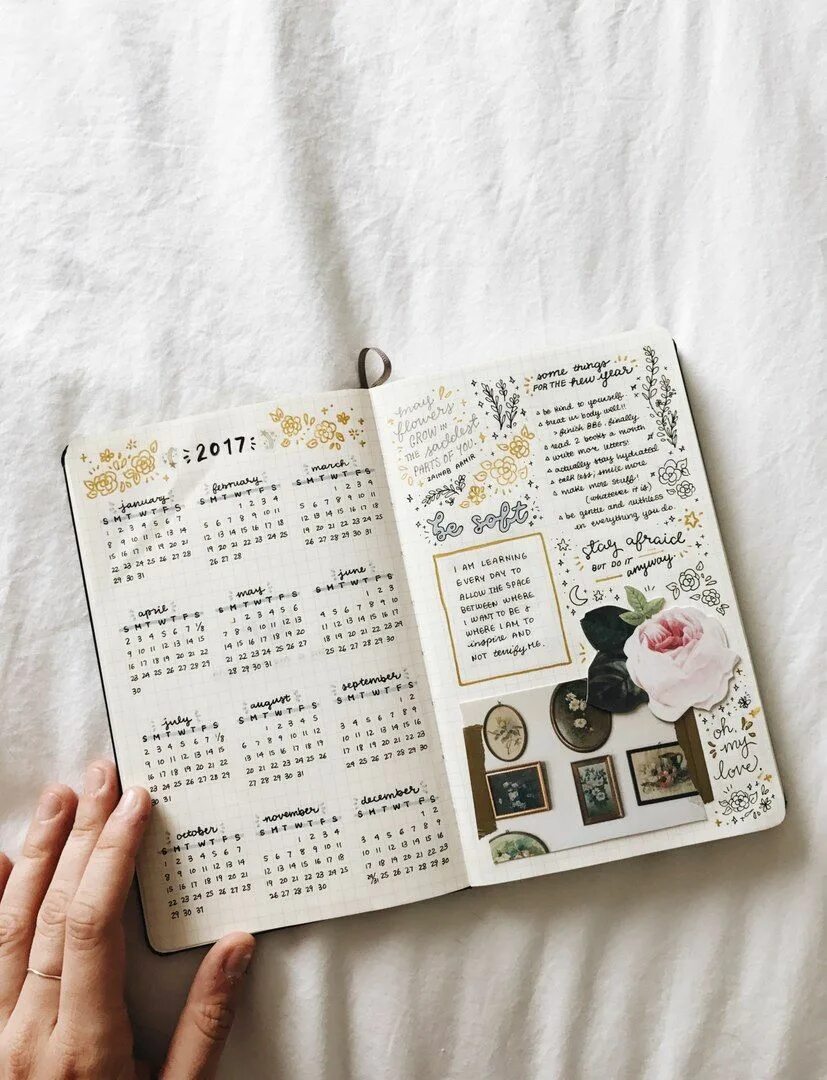 2017
january
S M T W T F S
1 2 3 4 5 6 7
8 9 10 11 12 13 14
15 16 17 18 19 20 21
22 23 24 25 26 27 28
29 30 31
february
S M T W T F S
1 2 3 4
5 6 7 8 9 10 11
12 13 14 15 16 17 18
19 20 21 22 23 24 25
26 27 28
march
S M T W T F S
1 2 3 4
5 6 7 8 9 10 11
12 13 14 15 16 17 18
19 20 21 22 23 24 25
26 27 28 29 30 31
april
S M T W T F S
2 3 4 5 6 7 1/8
9 10 11 12 13 14 15
16 17 18 19 20 21 22
23 24 25 26 27 28 29
30
may
S M T W T F S
1 2 3 4 5 6
7 8 9 10 11 12 13
14 15 16 17 18 19 20
21 22 23 24 25 26 27
28 29 30 31
june
S M T W T F S
1 2 3
4 5 6 7 8 9 10
11 12 13 14 15 16 17
18 19 20 21 22 23 24
25 26 27 28 29 30
july
S M T W T F S
2 3 4 5 6 7 1/8
9 10 11 12 13 14 15
16 17 18 19 20 21 22
23 24 25 26 27 28 29
30 31
august
S M T W T F S
1 2 3 4 5
6 7 8 9 10 11 12
13 14 15 16 17 18 19
20 21 22 23 24 25 26
27 28 29 30 31
september
S M T W T F S
1 2
3 4 5 6 7 8 9
10 11 12 13 14 15 16
17 18 19 20 21 22 23
24 25 26 27 28 29 30
october
S M T W T F S
1 2 3 4 5 6 7
8 9 10 11 12 13 14
15 16 17 18 19 20 21
22 23 24 25 26 27 28
29 30 31
november
S M T W T F S
1 2 3 4
5 6 7 8 9 10 11
12 13 14 15 16 17 18
19 20 21 22 23 24 25
26 27 28 29 30
december
S M T W T F S
1 2
3 4 5 6 7 8 9
10 11 12 13 14 15 16
17 18 19 20 21 22 23
24/31 25 26 27 28 29 30
may
flowers
GROW IN
THE saddest
PARTS OF YOU.
ZAINAB AAMIR
be soft
I AM LEARNING
EVERY DAY TO
ALLOW THE SPACE
BETWEEN WHERE
I WANT TO BE &
WHERE I AM TO
inspire AND
NOT terrify ME.
some things
FOR THE new year
be kind to yourself.
treat ur body well!!
finish BBG, finally
read 2 books a month
write more letters!
actually stay hydrated
talk less; smile more
make more stuff!
(whatever it is)
be gentle and ruthless
in everything you do.
stay afraid
BUT DO IT
anyway
oh,
my
love.